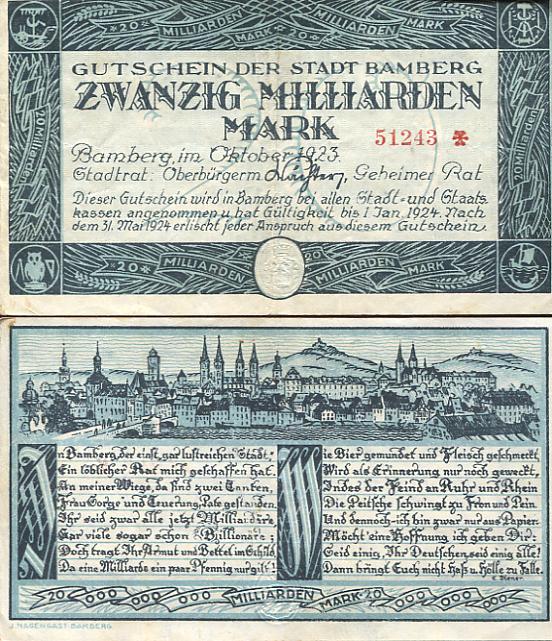 20 MILLIARDEN MARK 20 MILLIARDEN MARK 20
20 Milliarden
20 Milliarden
GUTSCHEIN DER STADT BAMBERG
ZWANZIG MILLIARDEN
MARK
51243
Bamberg, im Oktober 1923.
Stadtrat: Oberbürgerm. Geheimer Rat
Dieser Gutschein wird in Bamberg bei allen Stadt- und Staats
kassen angenommen u. hat Gültigkeit bis 1. Jan. 1924. Nach
dem 31. Mai 1924 erlischt jeder Anspruch aus diesem Gutschein.
20 MILLIARDEN MARK 20 MILLIARDEN MARK 20
In Bamberg, der einst, gar lustreichen Stadt,
Ein löblicher Rat mich geschaffen hat.
An meiner Wiege, da sind zwei Tanten,
Frau Sorge und Teuerung, Pate gestanden.
Ihr seid zwar alle jetzt Milliardäre,
Gar viele sogar schon Billionäre
Doch tragt Ihr Armut und Bettel im Schild,
Da eine Milliarde ein paar Pfennig nur gilt!
Wie Bier gemundet und Fleisch geschmeckt,
Wird als Erinnerung nur noch geweckt,
Indes der Feind an Ruhr und Rhein
Die Peitsche schwingt zu Fron und Pein.
Und dennoch-ich bin zwar nur aus Papier-
Möcht' eine Hoffnung ich geben Dir:
Seid einig, Ihr Deutschen, seid einig alle!
Dann bringt Euch nicht Haß u. Hölle zu Falle.
20 000 000 000 MILLIARDEN MARK 20 000 000 000
J. NAGENGAST BAMBERG